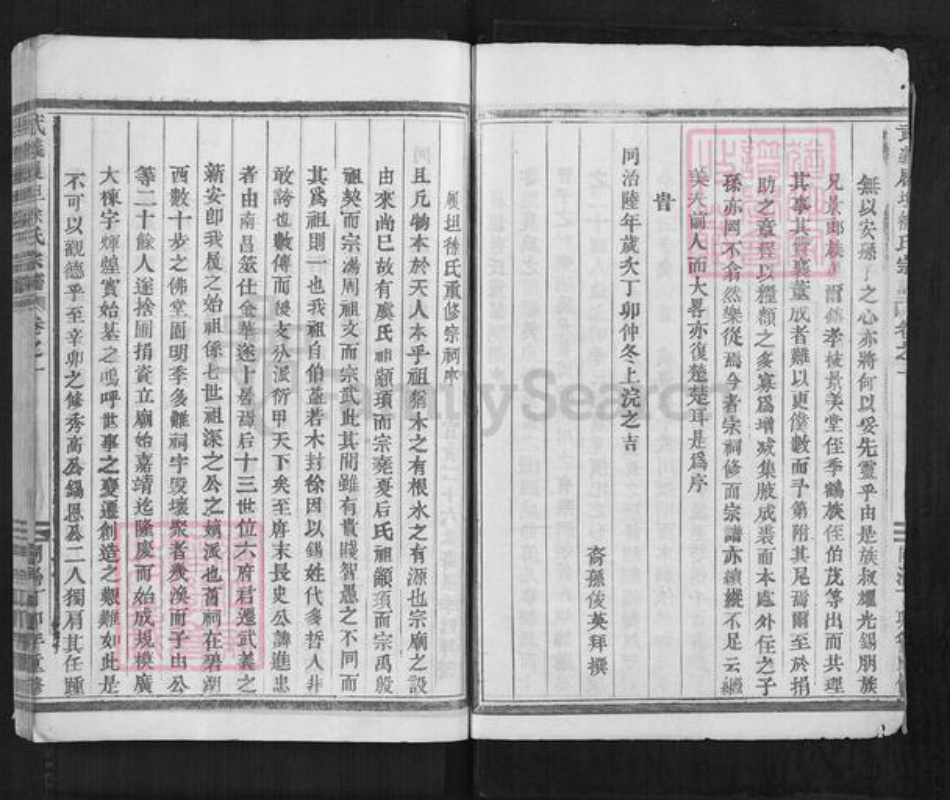 無以安孫子之心亦將何以妥先靈乎由是族叔耀光錫朋族
兄景郎族 爾 孝被景美堂侄季鶴族侄伯茂等出而共理
其事其贊襄董成者難以更僕數而予第附其尾焉爾至於捐
助之章程以糧額之多寡爲增减集腋成裘而本處外任之子
孫亦罔不翕然樂從焉今者宗祠修而宗譜亦續縱不足云繼
美夫前人而大畧亦復楚楚耳是爲序
旹
同治陸年歲次丁卯仲冬上浣之吉
裔孫俊英拜撰
履坦徐氏重修宗祠序
且凡物本於天人本乎祖猶木之有根水之有源也宗廟之設
由來尚巳故有虞氏祖顓頊而宗堯夏后氏祖顓頊而宗禹殷
祖契而宗湯周祖文而宗武此其間雖有貴賤智愚之不同而
其爲祖則一也我祖自伯益若木封徐因以錫姓代多哲人非
敢誇也數傳而後支分派衍甲天下矣至唐末長史公諱進忠
者由南昌筮仕金華遂卜居焉后十三世位六府君遷武義之
新安卽我履之始祖係七世祖深之公之嫡派也舊祠在碧湖
西數十步之佛堂園明季多難祠宇毀壞聚者幾渙而子由公
等二十餘人遂捨圃捐資立廟始嘉靖迄隆慶而始成規模廣
大棟宇輝煌實始基之嗚呼世事之變遷創造之艱難如此是
不可以觀德乎至辛卯之修秀高公錫恩公二人獨肩其任踵
武義履坦徐氏宗譜 卷之一